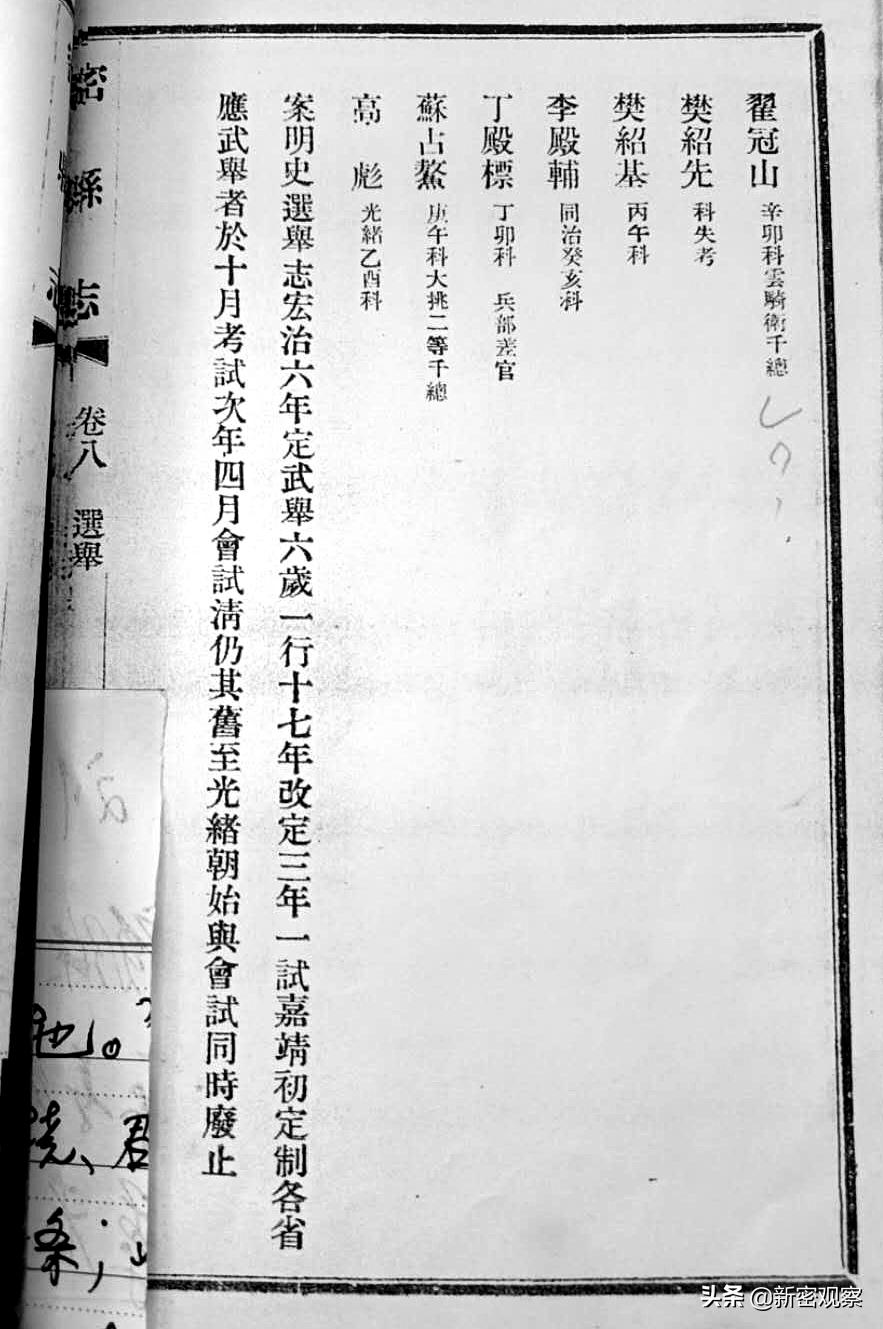 翟冠山 辛卯科雲騎衛千總
樊紹先 科失考
樊紹基 丙午科
李殿輔 同治癸亥科
丁殿標 丁卯科 兵部差官
蘇占鰲 庚午科大挑二等千總
高彪 光緒乙酉科
案明史選舉志宏治六年定武舉六歲一行十七年改定三年一試嘉靖初定制各省
應武舉者於十月考試次年四月會試清仍其舊至光緒朝始與會試同時廢止
密縣志 卷八 選舉
也。
君
条；
头条 @新密观察